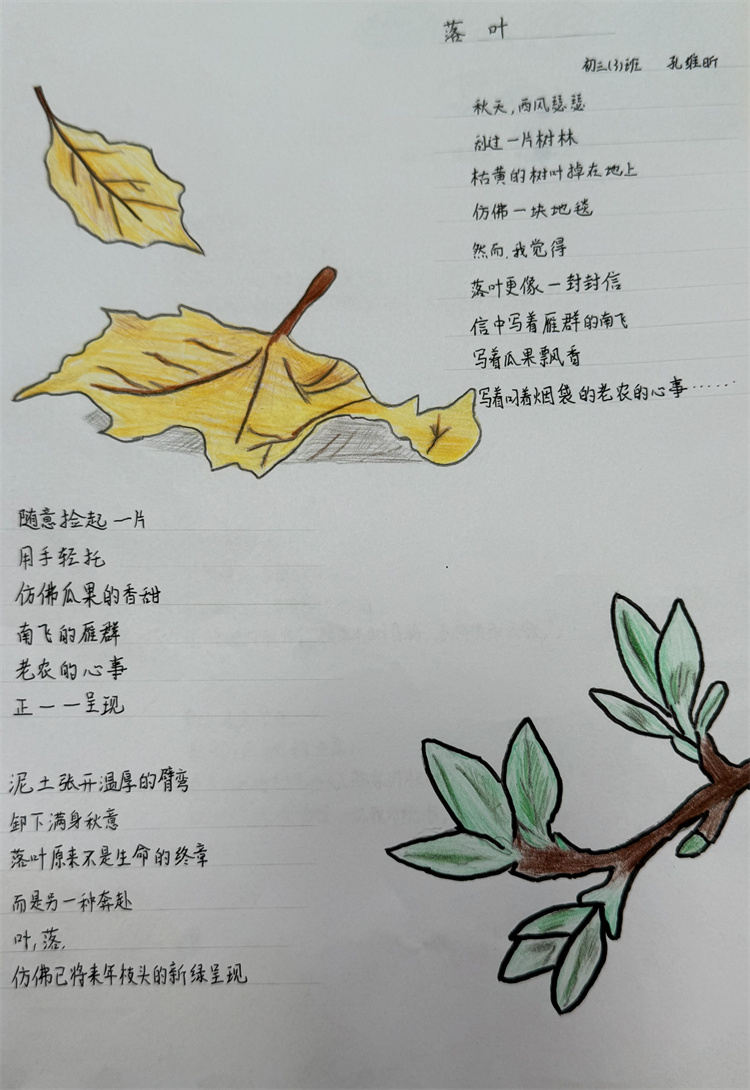 落叶
初三(3)班 孔维昕
秋天,西风瑟瑟
刮过一片树林
枯黄的树叶掉在地上
仿佛一块地毯
然而,我觉得
落叶更像一封封信
信中写着雁群的南飞
写着瓜果飘香
写着叼着烟袋的老农的心事……
随意捡起一片
用手轻托
仿佛瓜果的香甜
南飞的雁群
老农的心事
正一一呈现
泥土张开温厚的臂弯
卸下满身秋意
落叶原来不是生命的终章
而是另一种奔赴
叶,落,
仿佛已将来年枝头的新绿呈现